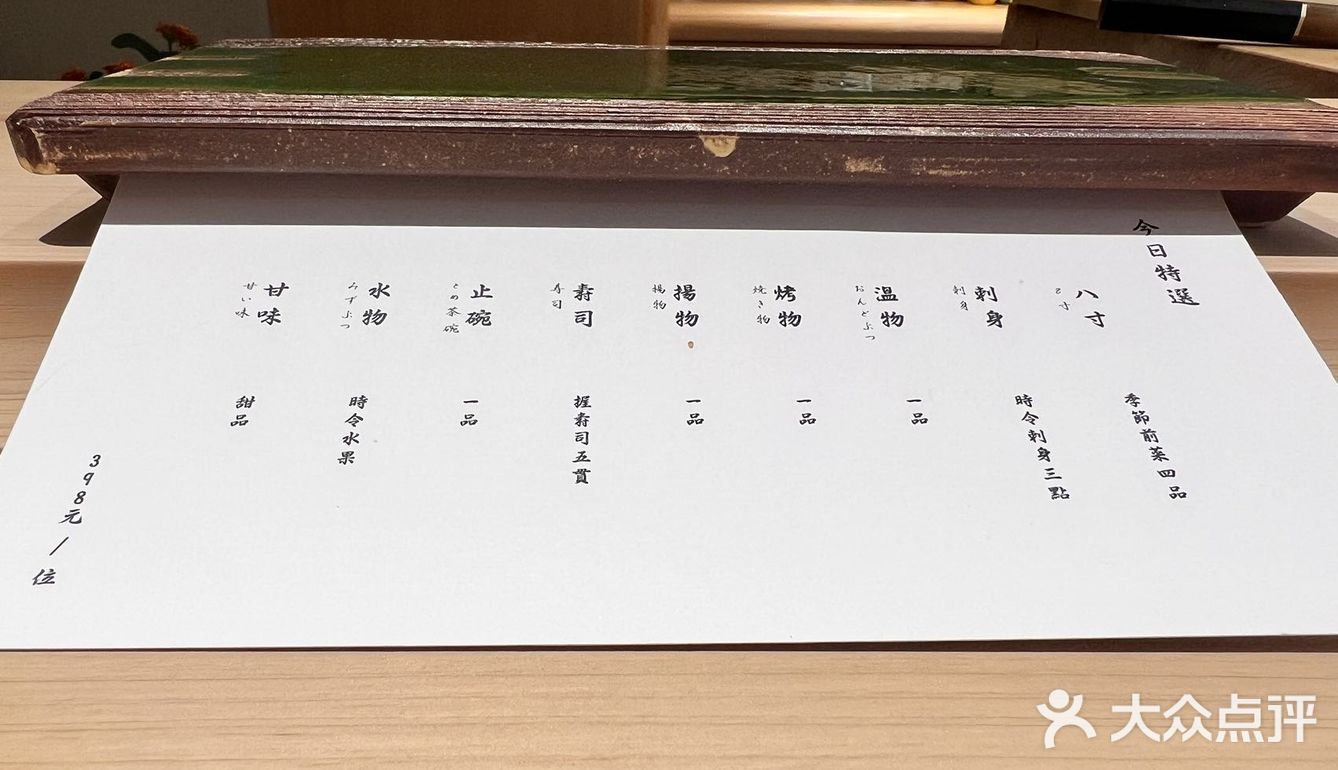 今日特選
八寸
8寸
季節前菜四品
刺身
刺身
時令刺身三點
温物
おんどぶつ
一品
烤物
焼き物
一品
揚物
揚物
一品
壽司
寿司
握壽司五貫
止碗
とめ茶碗
一品
水物
みずぶつ
時令水果
甘味
甘い味
甜品
398元/位
大众点评